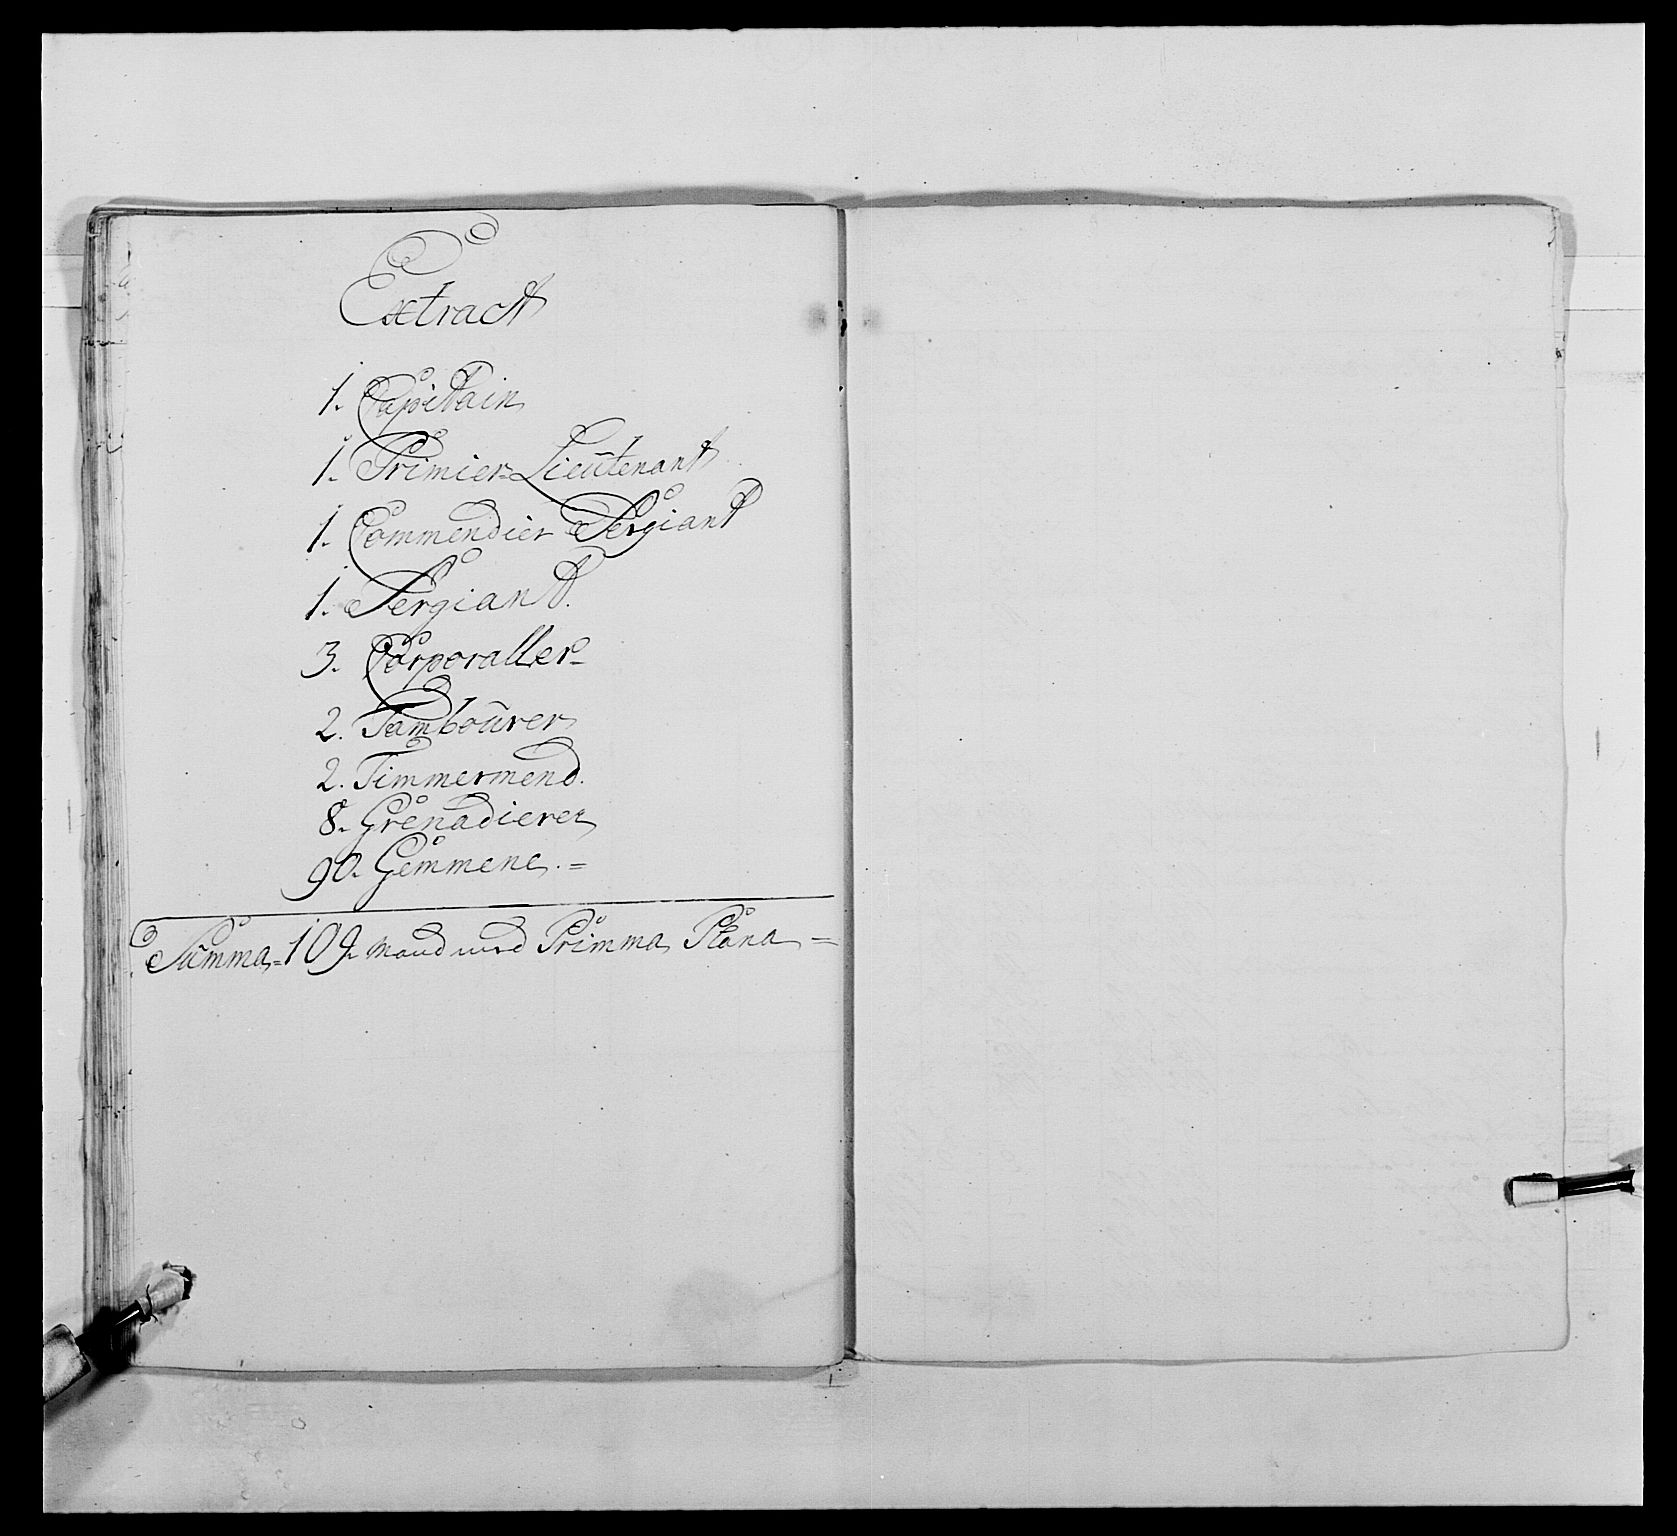 Extract
1. Capitain
1. Primier Lieutenant
1. Commendier Sergiant
1. Sergiant.
3. Corporaller
2. Tambourer
2. Timmermend.
8. Grenadierer
90. Gemmene. =
Summa = 109. Mand med Primma Plana =